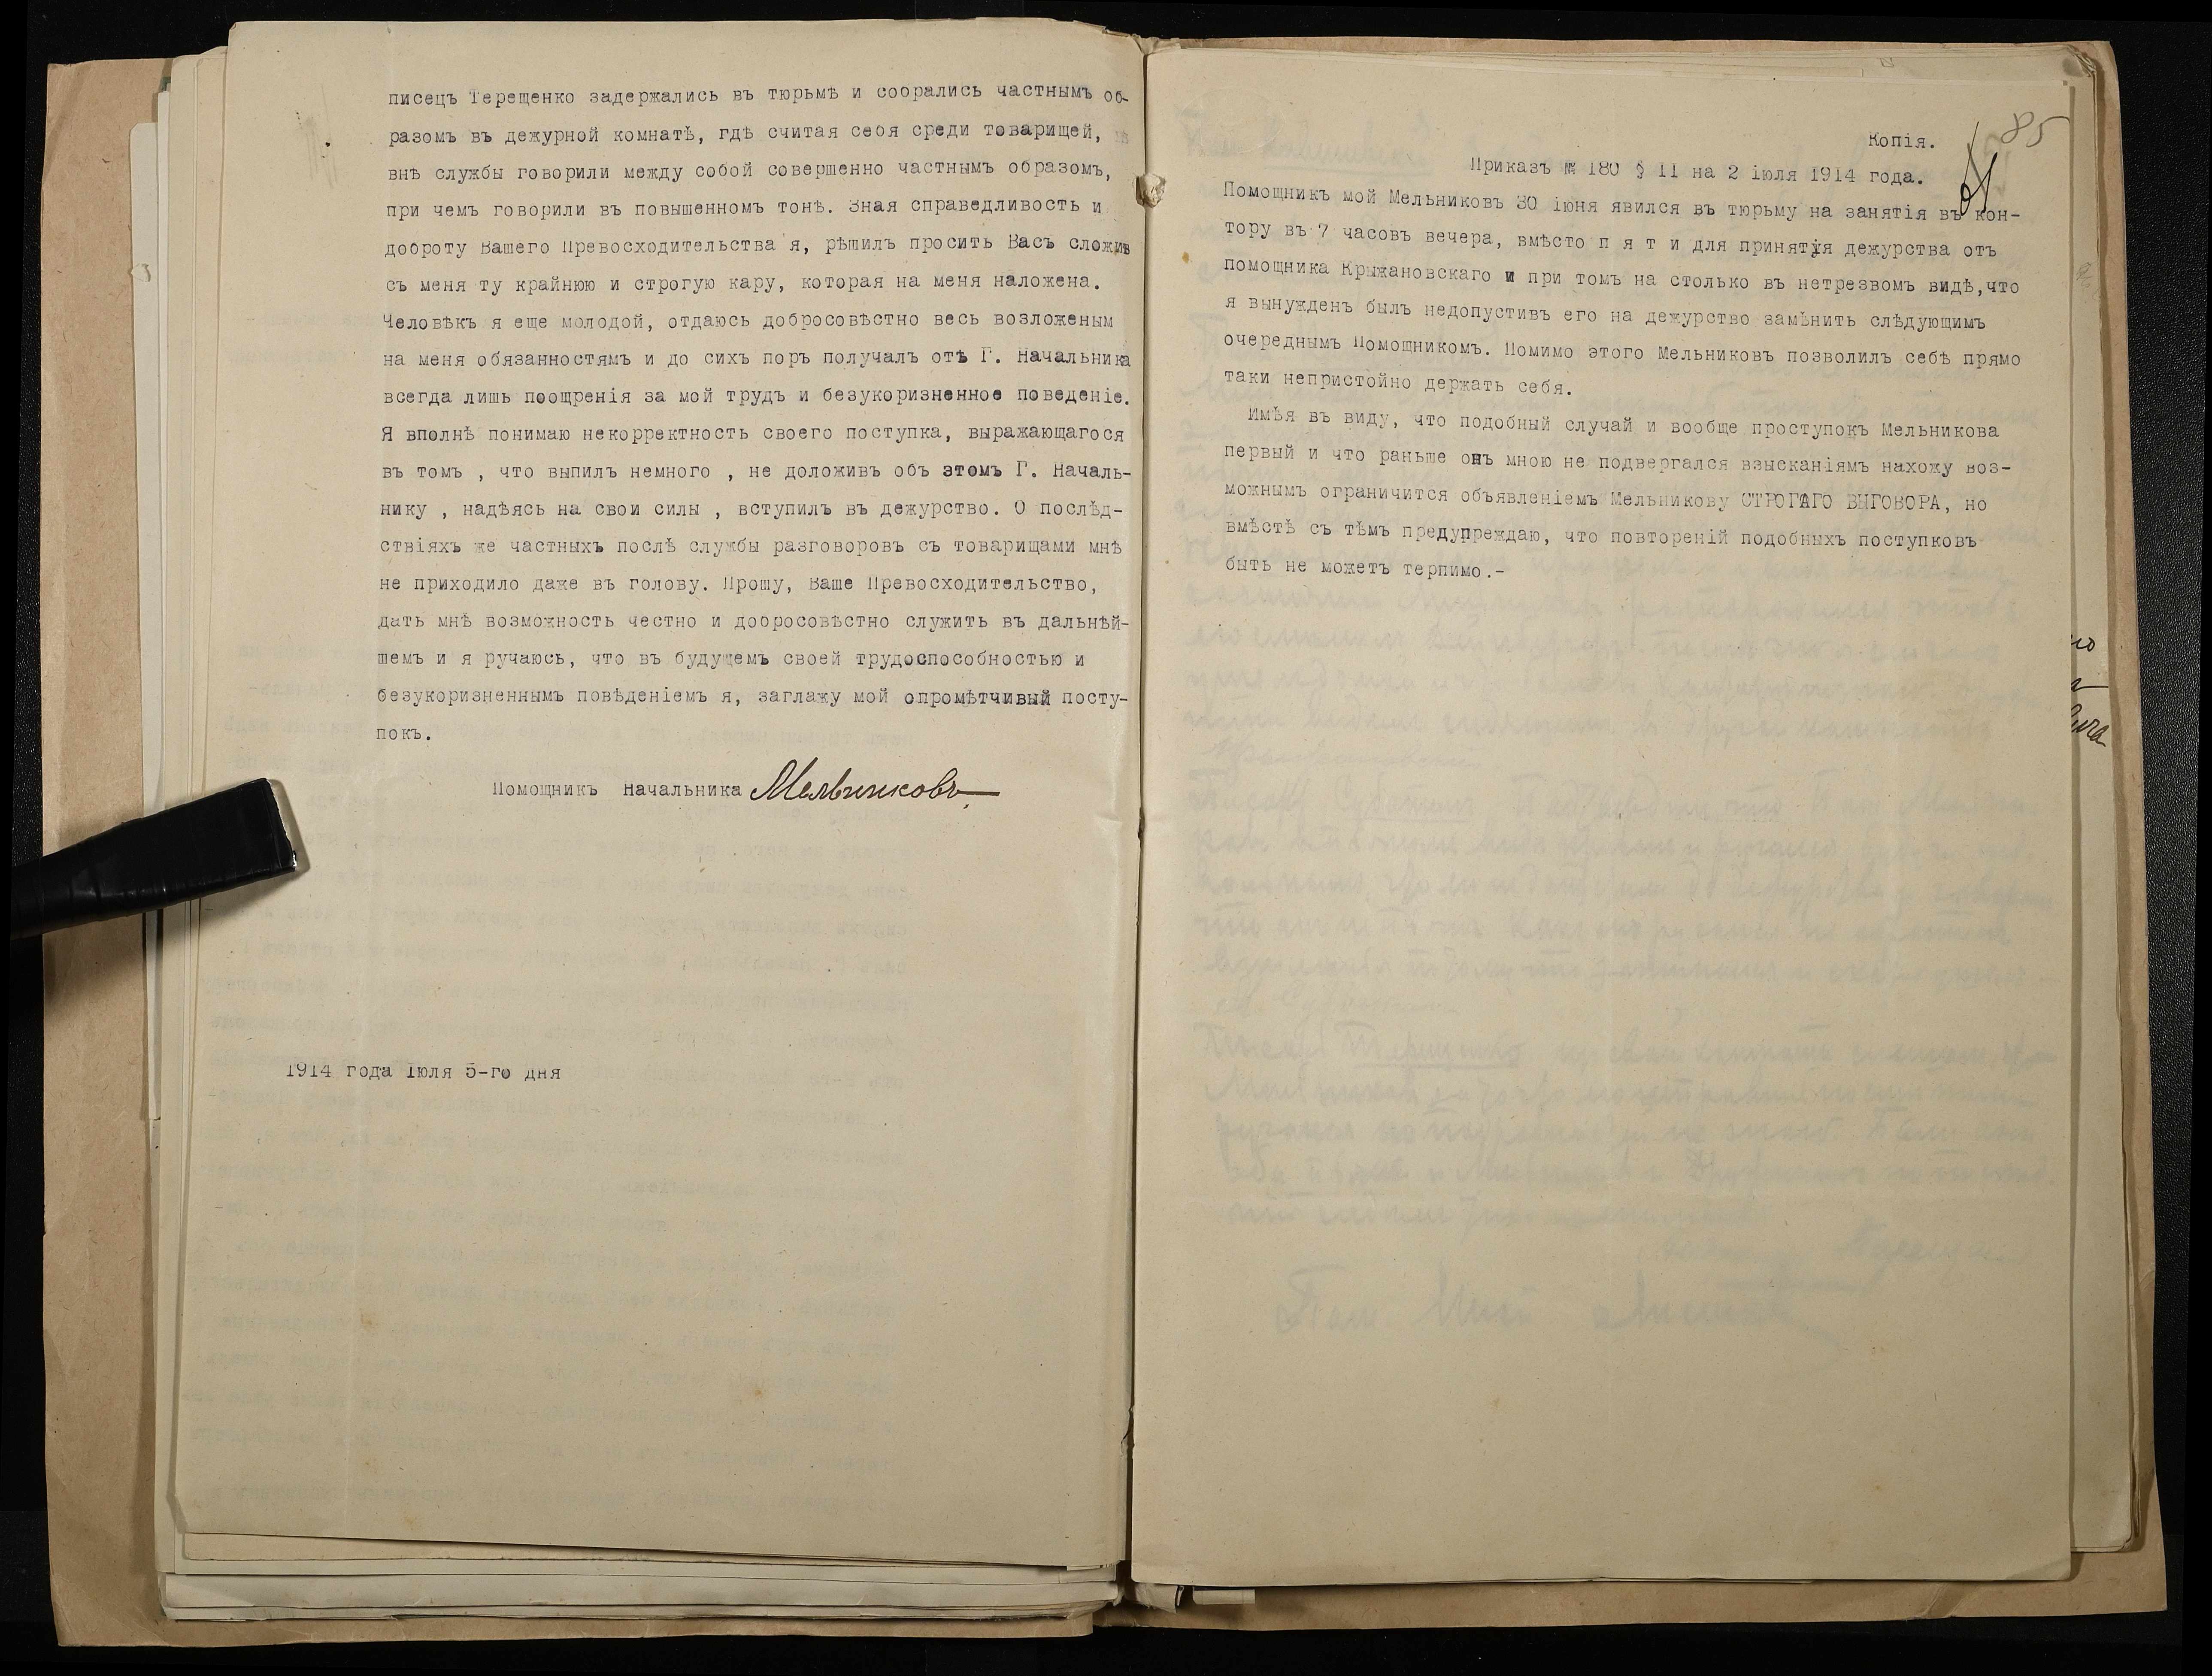 писецъ Терещенко задержались въ тюрьмѣ и собрались частнымъ об-
разомъ въ дежурной комнатѣ, гдѣ считая себя среди товарищей,
внѣ службы говорили между собой совершенно частнымъ образомъ,
при чемъ говорили въ повышенномъ тонѣ. Зная справедливость и
доброту Вашего Превосходительства я, рѣшилъ просить Васъ сложив
съ меня ту крайнюю и строгую кару, которая на меня наложена.
Человѣкъ я еще молодой, отдаюсь добросовѣстно весь возложеным
на меня обязанностямъ и до сихъ поръ получалъ отъ Г. Начальника
всегда лишь поощренія за мой трудъ и безукоризненное поведеніе.
Я вполнѣ понимаю некорректность своего поступка, выражающагося
въ томъ , что выпилъ немного , не доложивъ объ этомъ Г. Началь-
нику , надѣясь на свои силы , вступилъ въ дежурство. О послѣд-
ствіяхъ же частныхъ послѣ службы разговоровъ съ товарищами мнѣ
не приходило даже въ голову. Прошу, Ваше Превосходительство,
дать мнѣ возможность честно и добросовѣстно служить въ дальнѣй-
шемъ и я ручаюсь, что въ будущемъ своей трудоспособностью и
безукоризненнымъ повѣденіемъ я, заглажу мой опромѣтчивый посту-
покъ.
Помощникъ Начальника Мельниковъ
1914 года Іюля 5-го дня
85
Копія.
Приказъ № 180 § 11 на 2 іюля 1914 года.
Помощникъ мой Мельниковъ 30 іюня явился въ тюрьму на занятія въ кон-
тору въ 7 часовъ вечера, вмѣсто п я т и для принятія дежурства отъ
помощника Крыжановскаго и при томъ на столько въ нетрезвомъ видѣ,что
я вынужденъ былъ недопустивъ его на дежурство замѣнить слѣдующимъ
очереднымъ Помощникомъ. Помимо этого Мельниковъ позволилъ себѣ прямо
таки непристойно держать себя.
Имѣя въ виду, что подобный случай и вообще проступокъ Мельникова
первый и что раньше онъ мною не подвергался взысканіямъ нахожу воз-
можнымъ ограничится объявленіемъ Мельникову СТРОГАГО ВЫГОВОРА, но
вмѣстѣ съ тѣмъ предупреждаю, что повтореній подобныхъ поступковъ
быть не можетъ терпимо.-